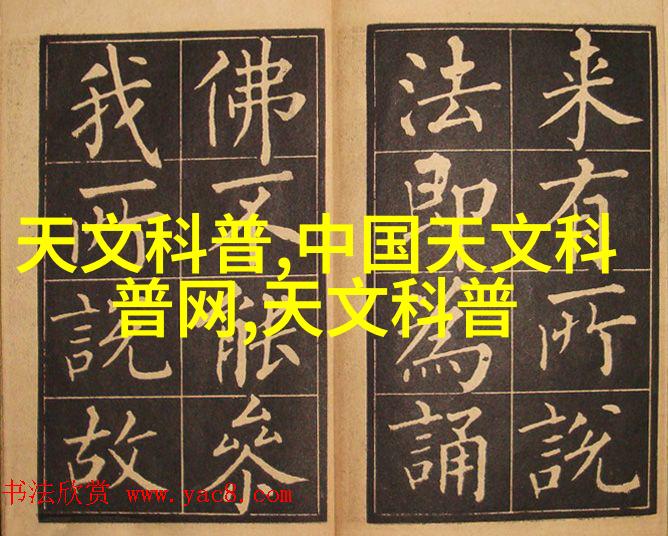 来有所說
法即為誦
佛不能叅
我所說故
天文科普,中国天文科
普网,天文科普
书法欣赏 www.yac8.com